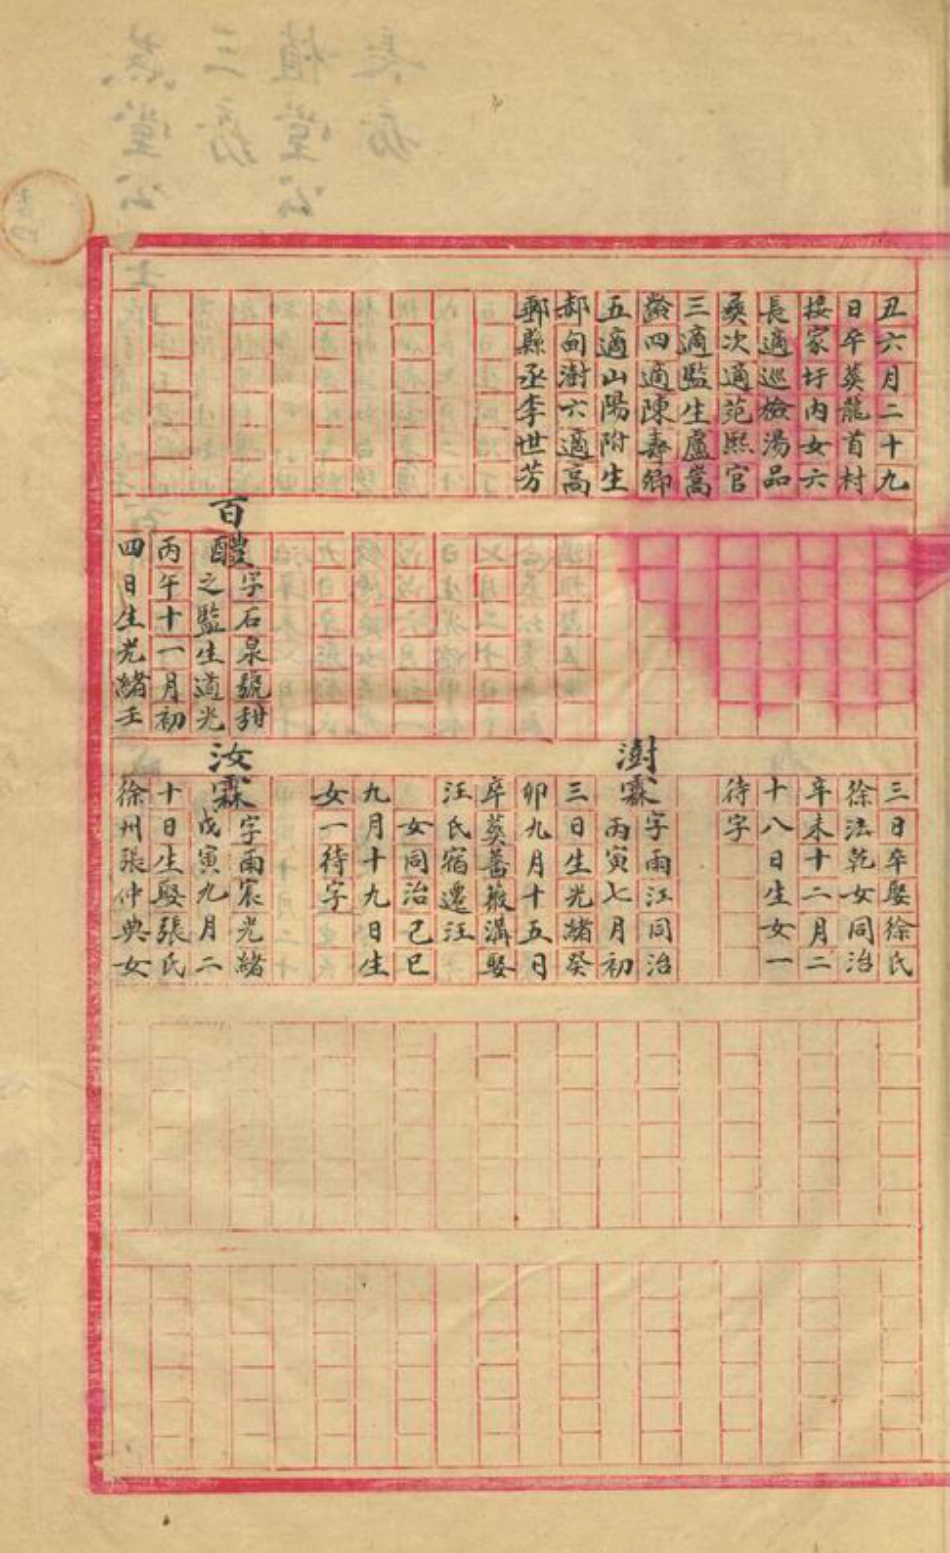 丑六月二十九
日卒葵龍首村
接家圩内女六
長適巡檢湯品
奭次適范熙官
三適監生盧嵩
齡四適陳壽卿
五適山陽附生
郝甸澍六適高
郵縣丞李世芳
百醴
字石泉號甜
之監生道光
丙午十一月初
四日生光緒壬
三日卒娶徐氏
徐法乾女同治
辛未十二月二
十八日生女一
待字
澍霖
字雨江同治
丙寅七月初
三日生光緒癸
卯九月十五日
卒葵薔薇溝娶
汪氏宿遷汪
女同治己巳
九月十九日生
女一待字
汝霖
字雨宸光緒
戊寅九月二
十日生娶張氏
徐州張仲典女